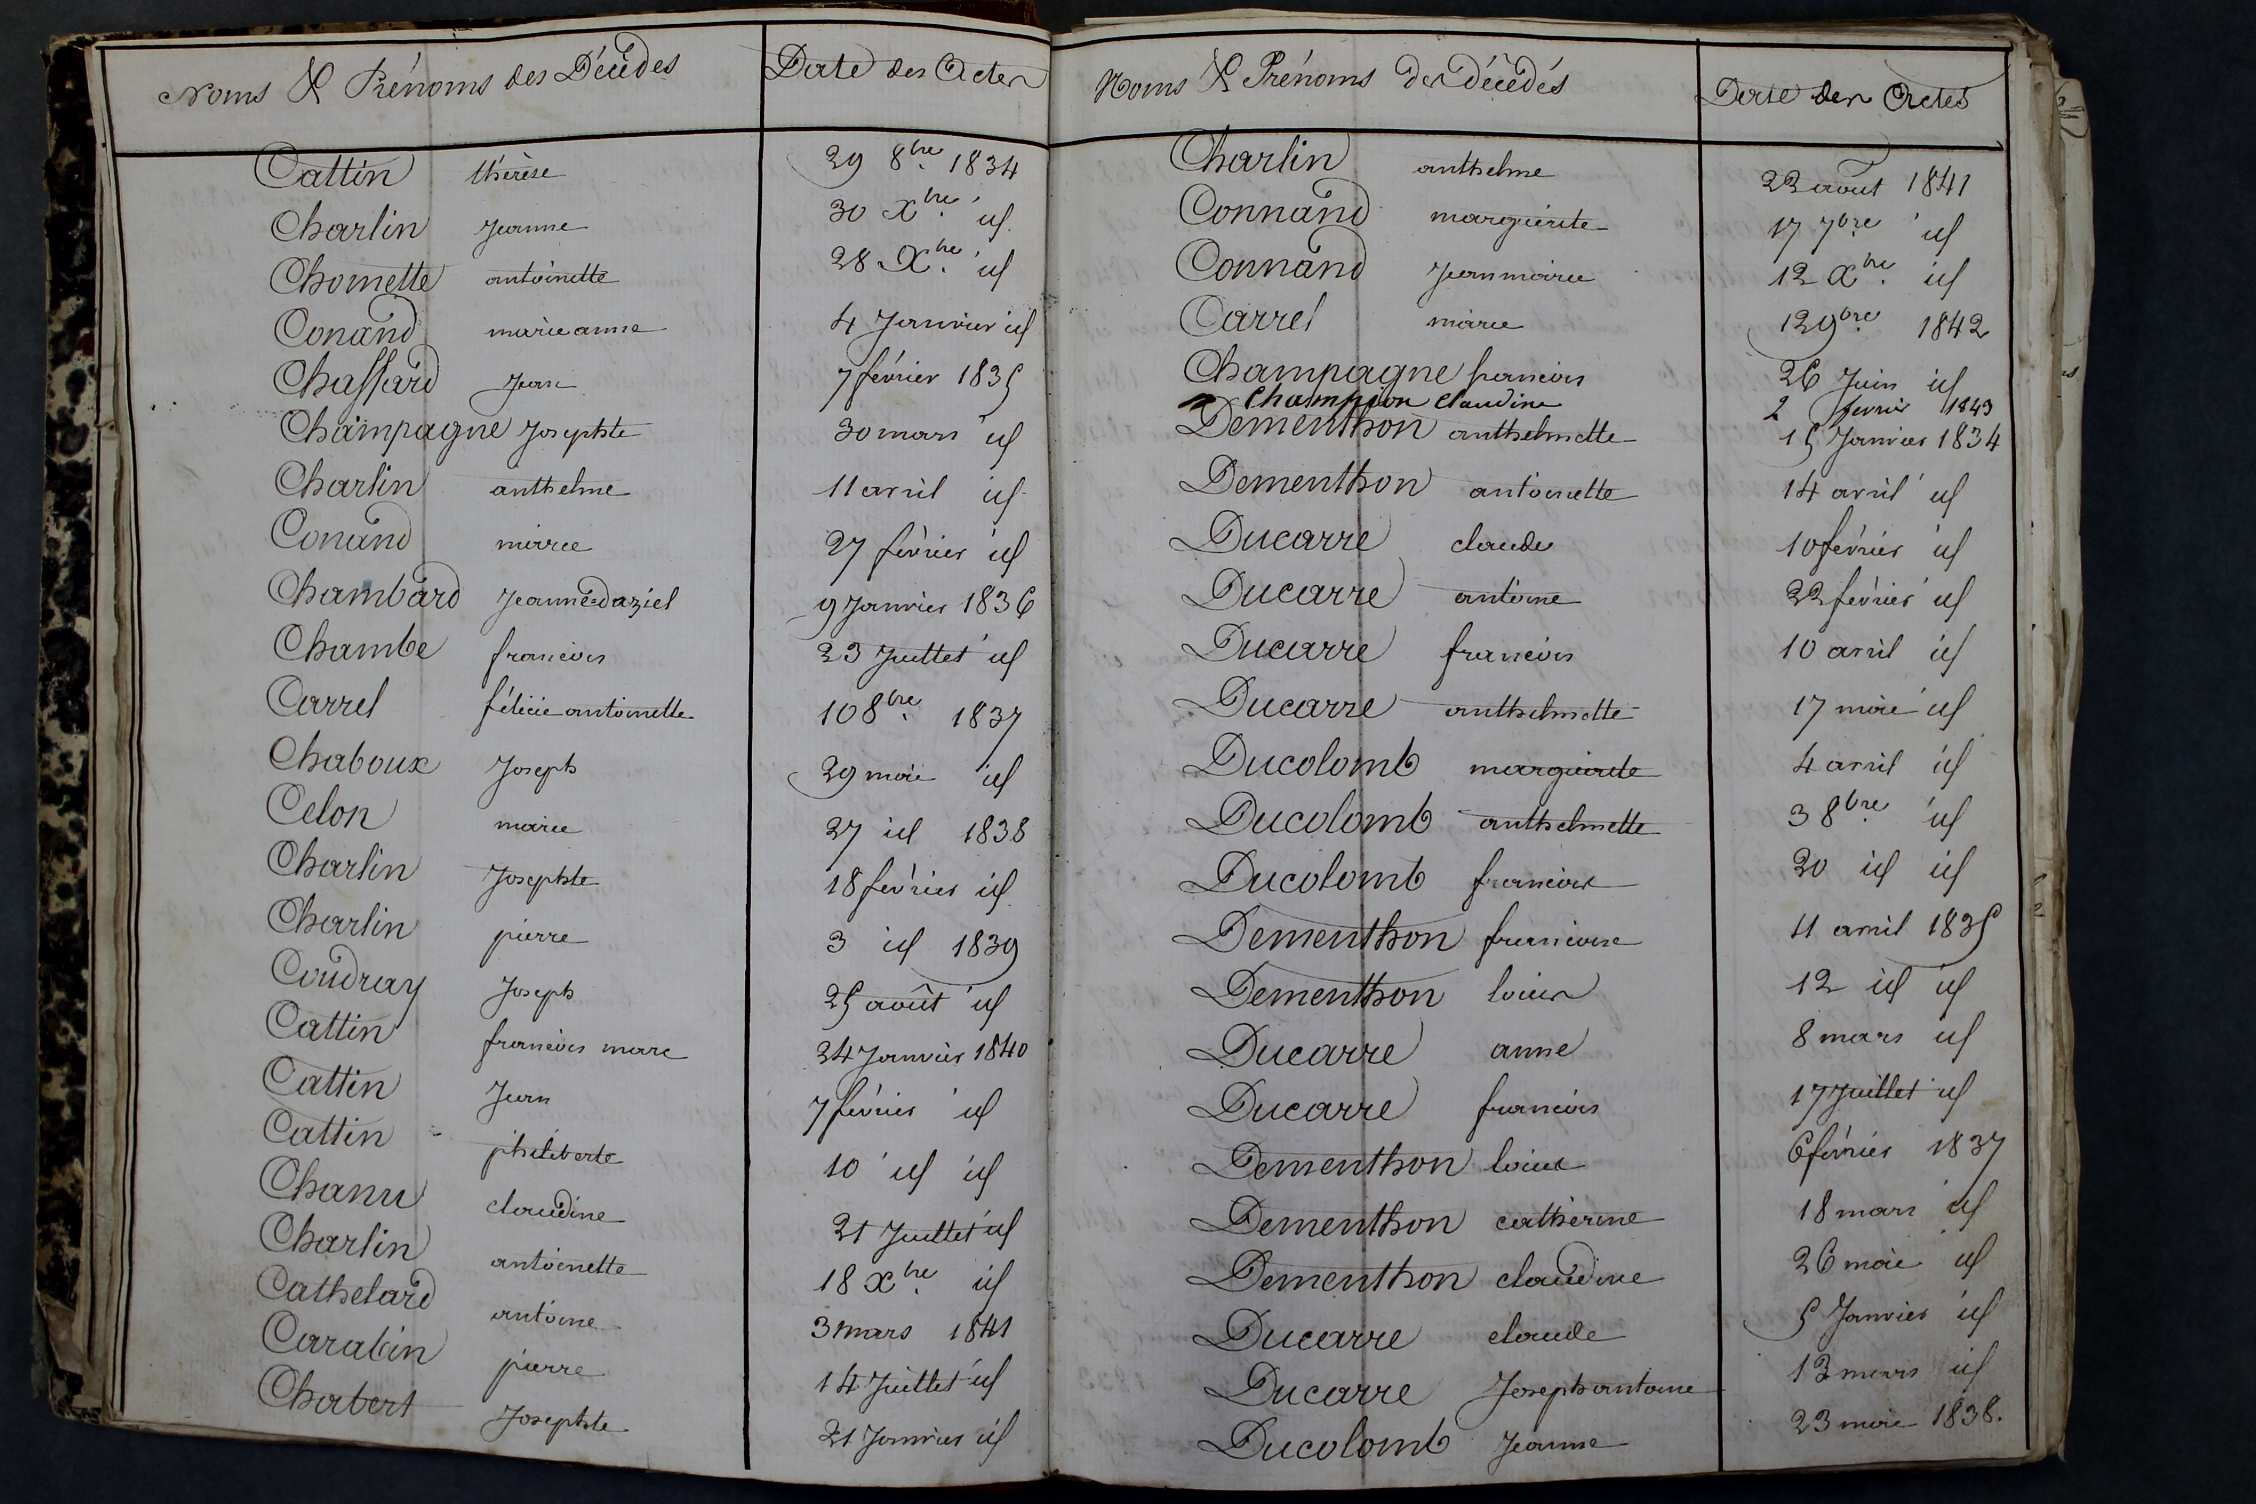 Noms & Prénoms des Décédés Date des Actes
Cattin thérèse 29 8bre 1834
Charlin Jeanne 30 Xbre id
Chomette antoinette 28 Xbre id
Conand marie anne 4 Janvier id
Chaffard Jean 7 février 1835
Champagne Josephte 30 mars id
Charlin anthelme 11 avril id
Conand marie 27 février id
Chambard Jeanne=daziel 9 Janvier 1836
Chambe francois 23 Juillet id
Carrel félicie antoinette 10 8bre 1837
Chaboux Joseph 29 mai id
Celon marie 27 id 1838
Charlin Josephte 18 février id
Charlin pierre 3 id 1839
Coudray Joseph 25 août id
Cattin francois marc 24 Janvier 1840
Cattin Jean 7 février id
Cattin philiberte 10 id id
Chanu claudine 21 Juillet id
Charlin antoinette 18 Xbre id
Cathelard antoine 3 mars 1841
Carabin pierre 14 Juillet id
Chabert Josephte 21 Janvier id
Noms & Prénoms des décédés Date des Actes
Charlin anthelme 22 août 1841
Connand marguerite 17 7bre id
Connand Jean marie 12 Xbre id
Carrel marie 12 9bre 1842
Champagne francois 26 Juin id
Champion Claudine 2 fevrier 1843
Dementhon anthelmette 15 Janvier 1834
Dementhon antoinette 14 avril id
Ducarre claude 10 février id
Ducarre antoine 22 février id
Ducarre francois 10 avril id
Ducarre anthelmette 17 mai id
Ducolomb marguerite 4 avril id
Ducolomb anthelmette 3 8bre id
Ducolomb francois 20 id id
Dementhon francoise 11 avril 1835
Dementhon louis 12 id id
Ducarre anne 8 mars id
Ducarre francois 17 Juillet id
Dementhon louise 6 février 1837
Dementhon catherine 18 mars id
Dementhon claudine 26 mai id
Ducarre claude 5 Janvier id
Ducarre Joseph antoine 13 mars id
Ducolomb Jeanne 23 mai 1838.